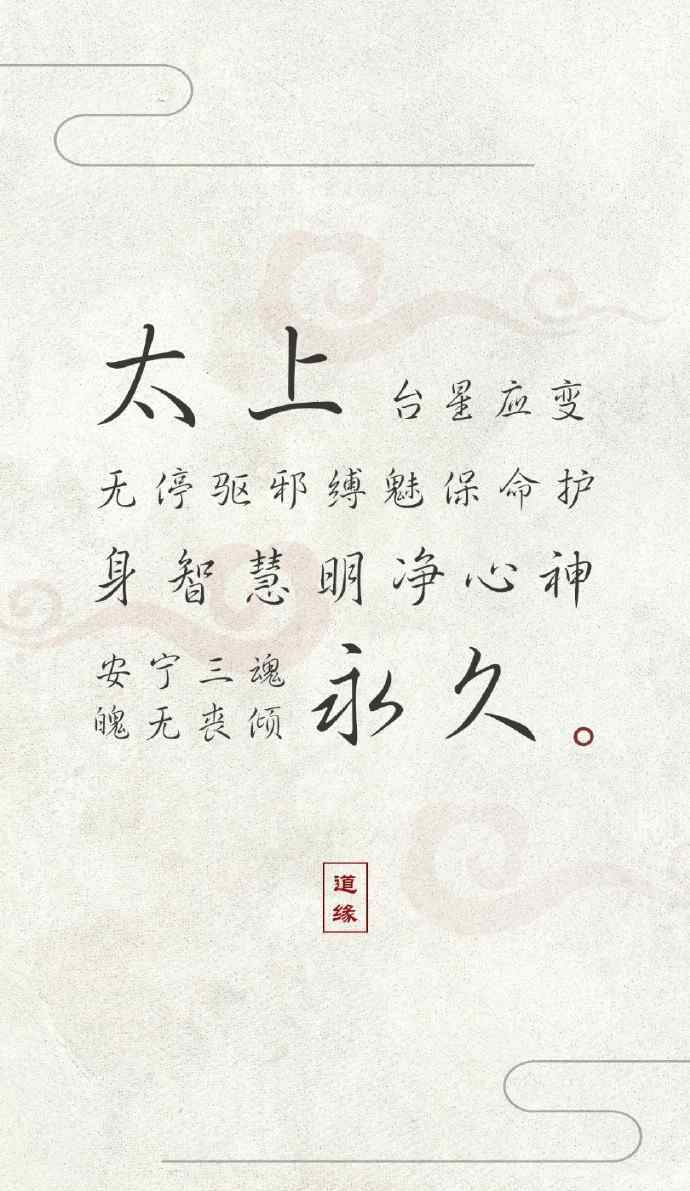 太上台星应变
无停驱邪缚魅保命护
身智慧明净心神
安宁三魂永久。
魄无丧倾
道
缘